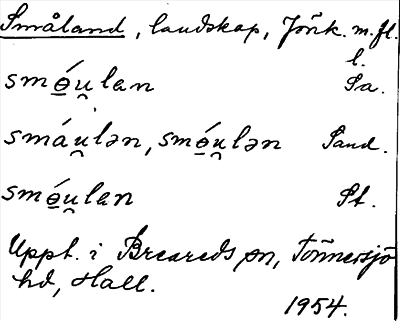 Småland, landskap, Jönk. m.fl.
l.
smó̱u̯lan Sa.
smáu̯lən, smó̱u̯lən Sand.
smó̱u̯lan St.
Uppt. i Breareds sn, Tönnersjö
hd, Hall.
1954.